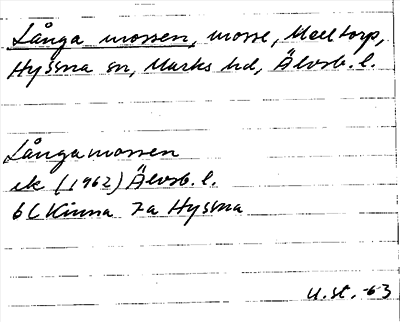 Långa mossen, mosse, Meltorp,
Hyssna sn, Marks hd, Älvsb. l.
Långamossen
ek (1962) Älvsb. l.
6C Kinna 7a Hyssna
U.St. -63